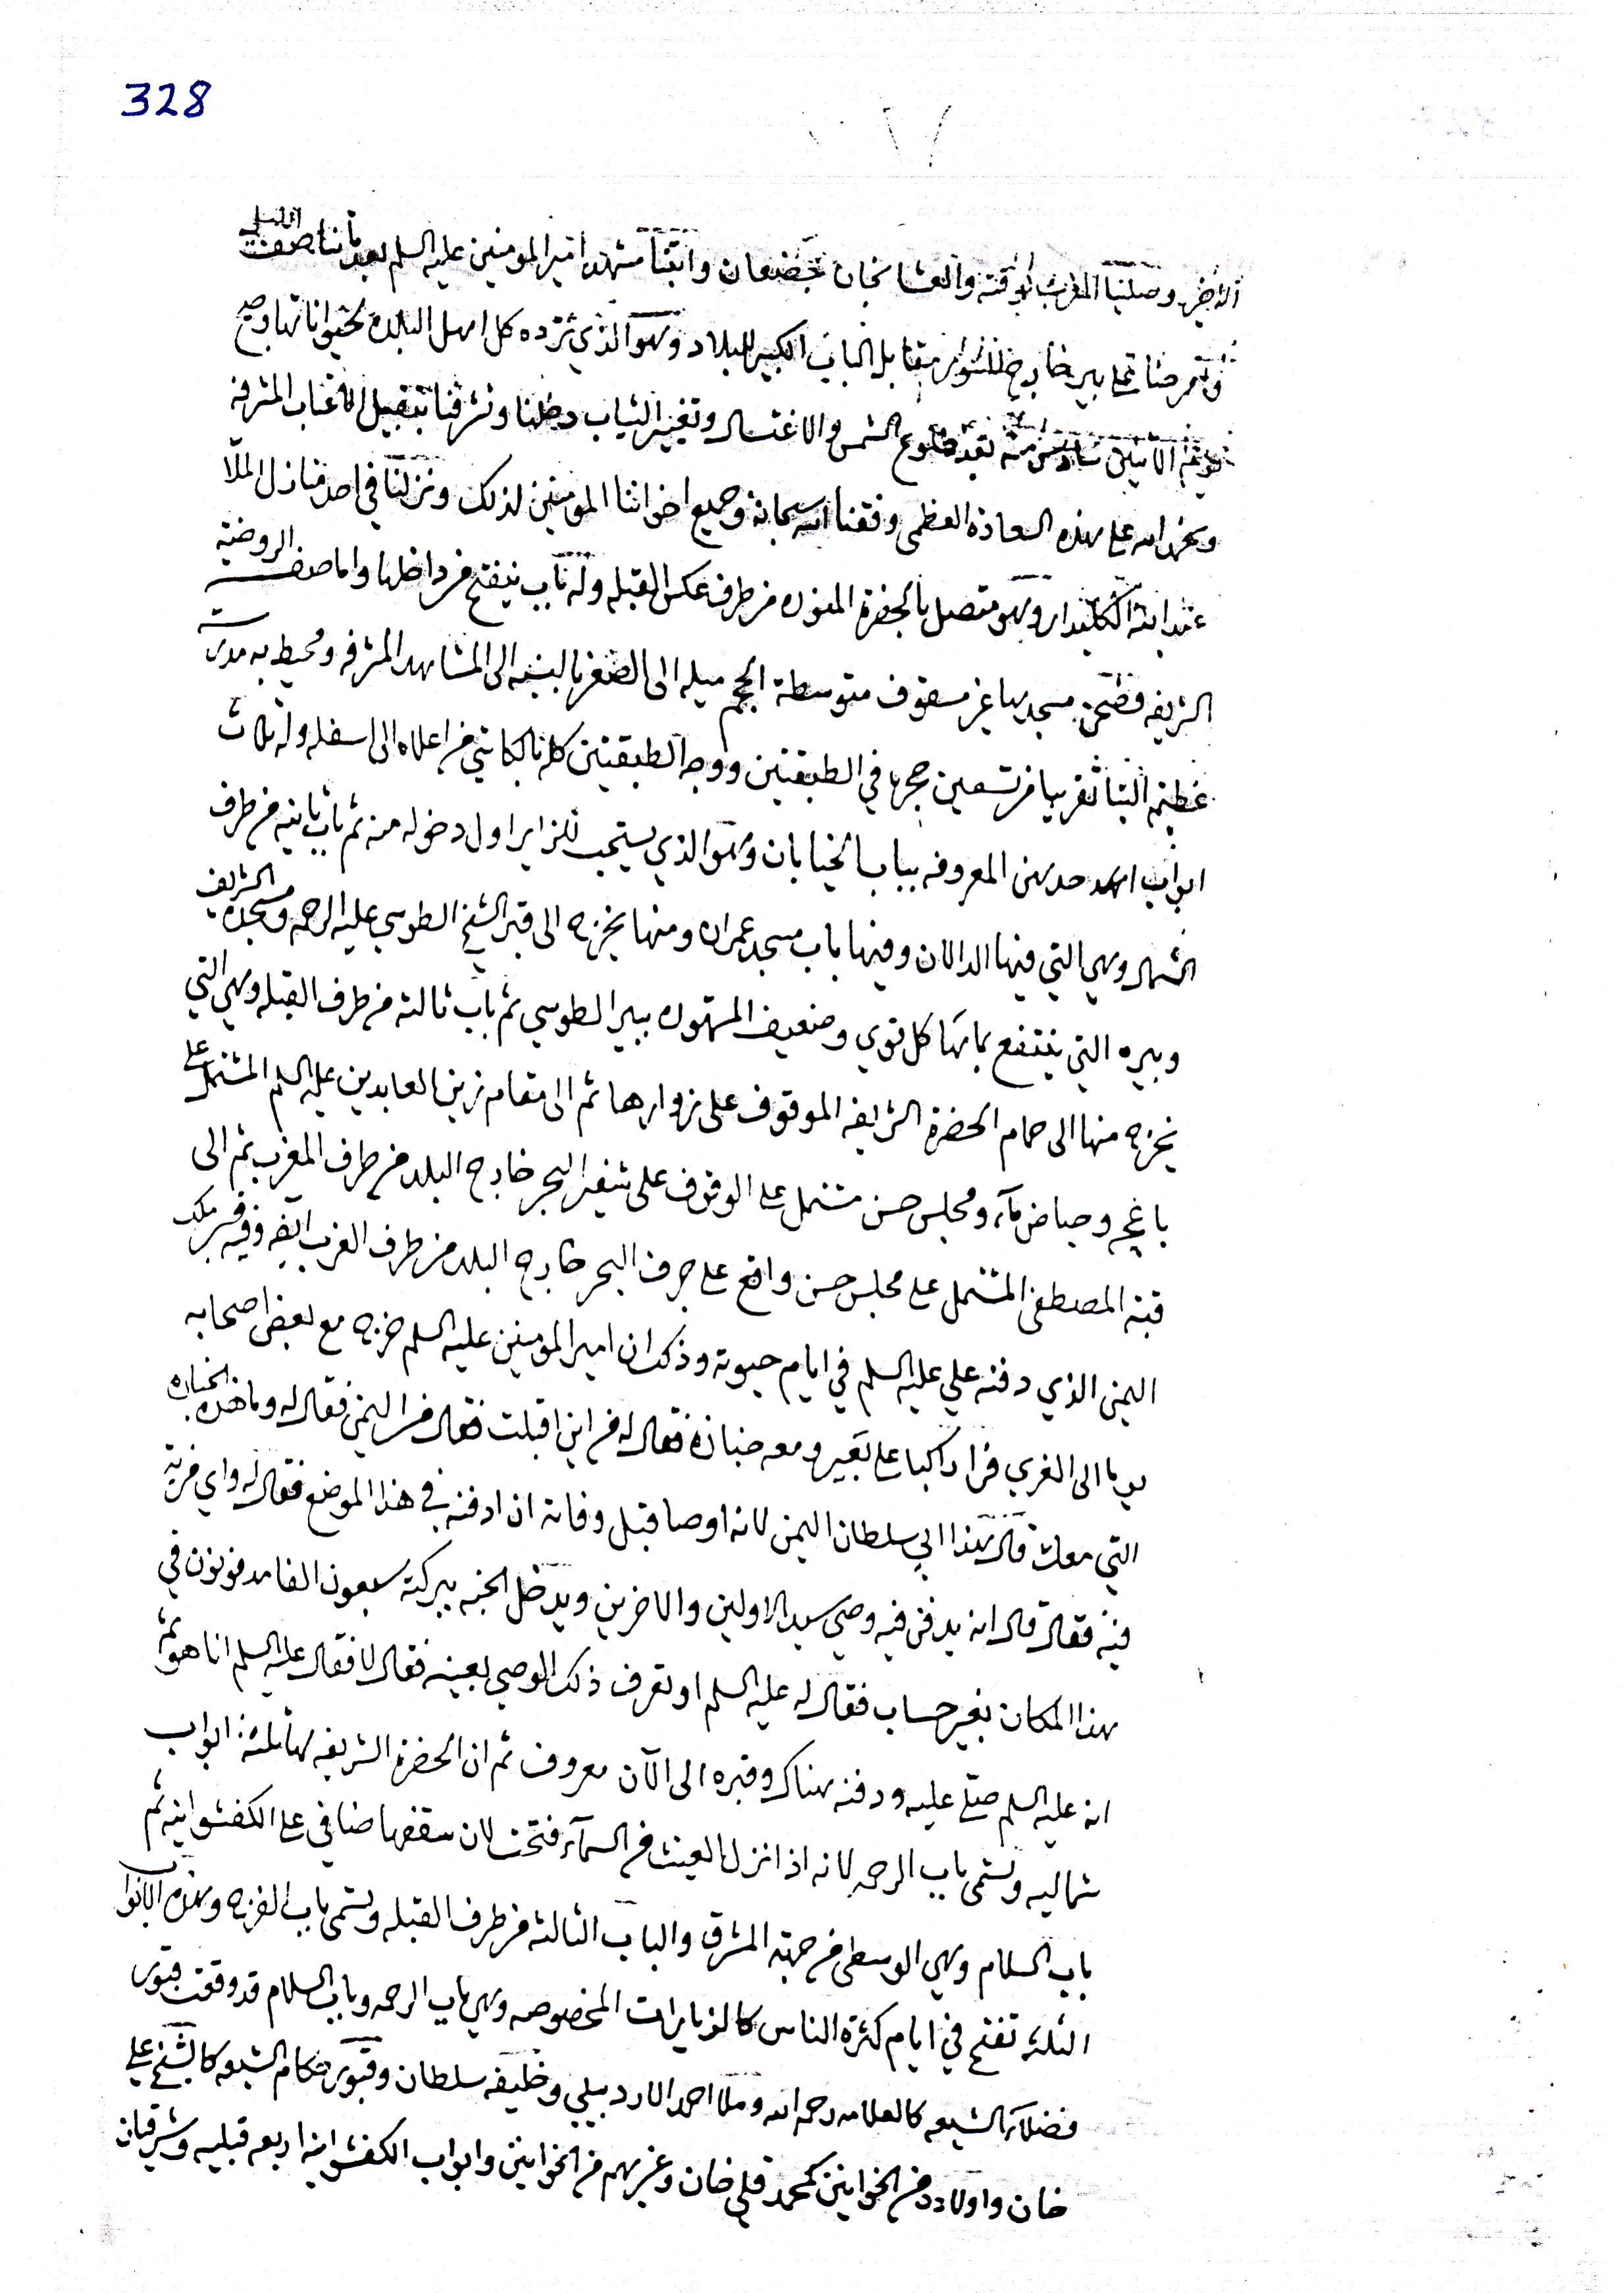 328
الاخير وصلينا المغرب لوقته والعشا بخان جضعان واتينا مشهد امير المومنين عليه السلم بعد ما تناصف الليل
وتمرضنا على بير خارج السور مقابل الباب الكبير للبلاد وهو الذي ترده كل اهل البلاد بحيواناتها
يوم الاثنين سادس منه بعد طلوع الشمس والاغتسال وتغيير الثياب دخلنا وتشرفنا بتقبيل الاعتاب المشرفه
ونحمد الله على هذه السعادة العظمى وفقنا الله سبحانه وجميع اخواننا المومنين لذلك ونزلنا في احد منازل الملا
عبد الله الكليدار وهو متصل بالحضرة المنوره من طرف عكس القبله وله باب ينفتح من داخلها واما صفة الروضة
الشريفه فصحن مسجدها غير مسقوف متوسطة الحجم ميله الى الصغر بالنسبه الى المشاهد المشرفه ومحيط به مدرسة
عظيمة البنا تقريبا من تسعين حجره في الطبقتين ووجه الطبقتين كله بالكاشي من اعلاه الى اسفله وله ثلاث
ابواب احدهن المعروفه بباب الخيابان وهو الذي يستحب للزاير اول دخوله منه ثم باب ثانيه من طرف
الشمال وهي التي فيها الدالان وفيها باب مسجد عمران ومنها يخرج الى قبر الشيخ الطوسي عليه الرحمه ومسجده الشريف
وبيره التي ينتفع بمائها كل قوي وضعيف المشهوره ببير الطوسي ثم باب ثالثه من طرف القبله وهي التي
يخرج منها الى حمام الحضرة الشريفه الموقوف على زوارها ثم الى مقام زين العابدين عليه السلم المشتمل على
باغچه وحياض مآء ومجلس حسن مشتمل على الوقوف على شفير البحر خارج البلد من طرف المغرب ثم الى
قبة المصطفى المشتمل على مجلس حسن واقع على جرف البحر خارج البلد من طرف الغرب ايضه وفيه قبر ملك
اليمن الذي دفنه علي عليه السلم في ايام حيوته وذكر ان امير المومنين عليه السلم خرج مع بعض اصحابه
يوما الى الغري فراى راكبا على بعير ومعه جنازة فقال له من اين اقبلت فقال من اليمن فقال له وما هذه الجنازه
التي معك قال هذا ابي سلطان اليمن لانه اوصا قبل وفاته ان ادفنه في هذا الموضع فقال له واي مزية
فيه فقال قال انه يدفن فيه وصي سيد الاولين والاخرين ويدخل الجنه ببركته سبعون الفا مدفونون في
هذا المكان بغير حساب فقال له عليه السلم اوتعرف ذلك الوصي بعينه فقال لا فقال عليه السلم انا هو ثم
انه عليه السلم صلى عليه ودفنه هناك وقبره الى الآن معروف ثم ان الحضرة الشريفه لها ثلثة ابواب
شماليه وتسمى باب الرحمه لانه اذا نزل الغيث من السمآء فتحت لان سقفها ضافي على الكفشوانيه ثم
باب السلام وهي الوسطى من جهة المشرق والباب الثالثه من طرف القبله وتسمى باب الفرج وهذه الابواب
الثلثه تفتح في ايام كثرة الناس كالزيارات المخصوصه وهي باب الرحمه وباب السلام قد وقفت قبور
فضلآء الشيعه كالعلامه رحمه الله وملا احمد الاردبيلي وخليفه سلطان وقبور حكام الشيعه كالشيخ علي
خان واولاده من الخوانين كمحمد قلي خان وغيرهم من الخوانين وابواب الكفشوانيه اربعه قبليه وشرقيتان